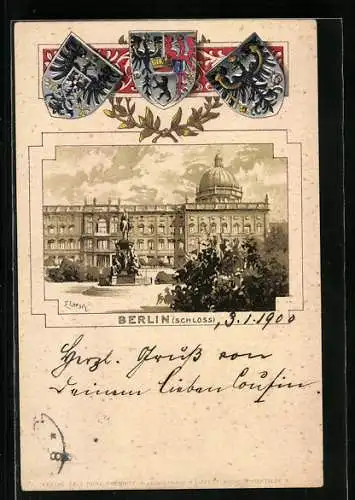 BERLIN (SCHLOSS), 3.1.1900
Herzl. Gruß von
Deinem lieben Cousin